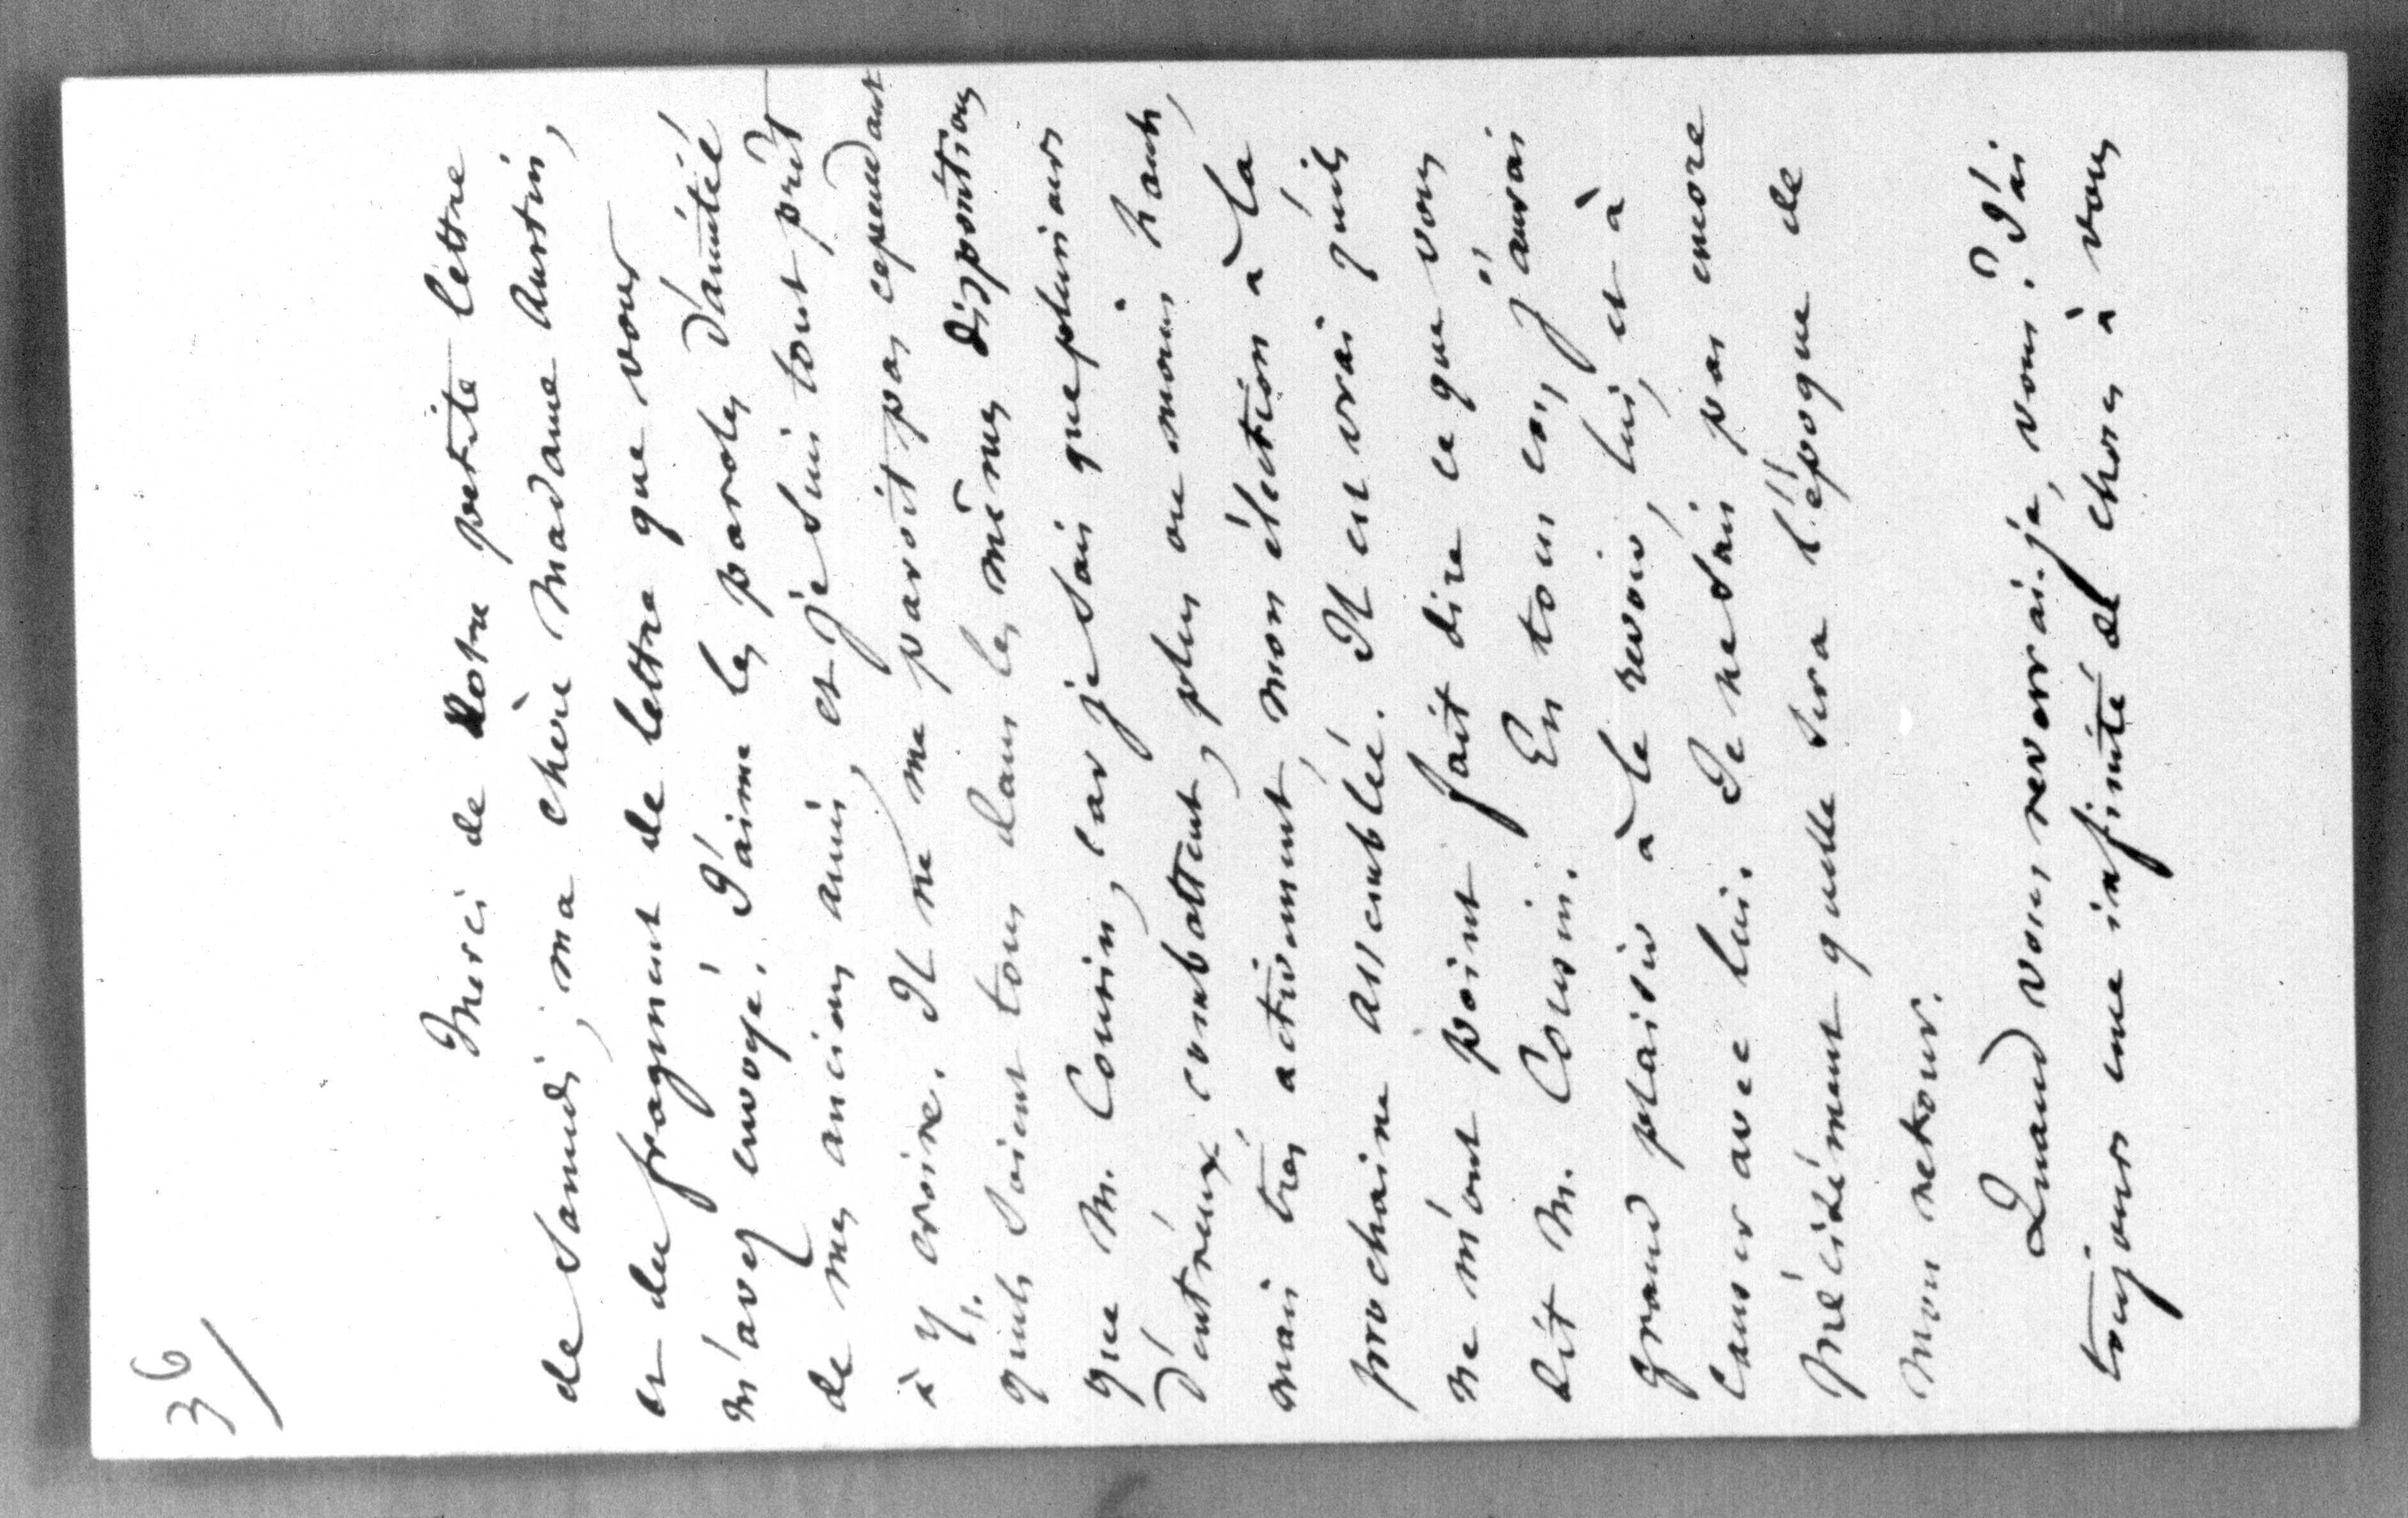 36
Merci de votre petite lettre
de Samedi, ma chère Madame Austin,
et du fragment de lettre que vous
m'avez envoyé. J'aime les paroles d'amitié
de mes anciens amis, et je suis tout prêt
à y croire. Il ne me paroit pas cependant
qu'ils soient tous dans les mêmes dispositions
que M. Cousin, car je sais que plusieurs
d'entr'eux combattent, plus ou moins haut,
mais très activement, mon élection à la
prochaine assemblée. Il est vrai qu'ils
ne m'ont point fait dire ce que vous
dit M. Cousin. En tout cas, j'aurai
grand plaisir à le revoir, lui, et à
causer avec lui. Je ne sais pas encore
précisément quelle sera l'époque de
mon retour.
Quand vous reverrai-je, vous ? J'ai
toujours une infinité de choses à vous